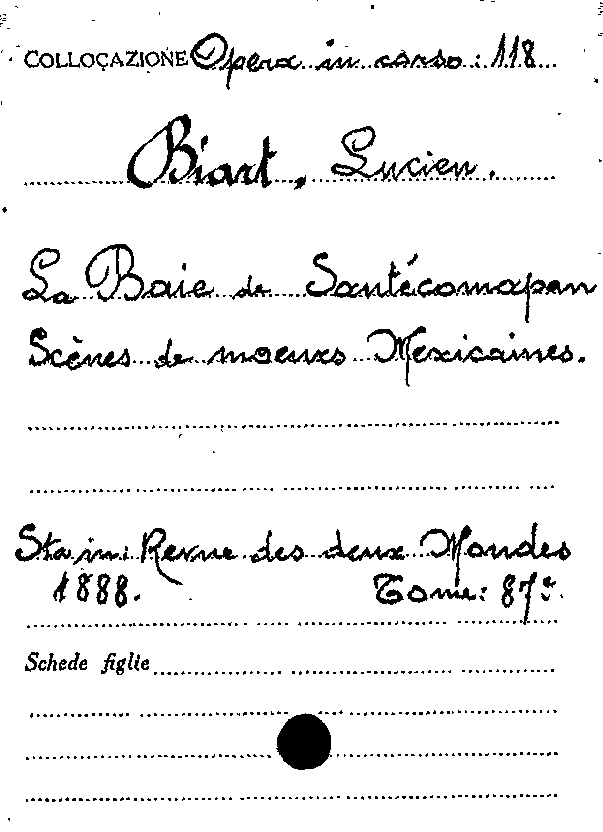 COLLOCAZIONE Opera in corso: 118
Biart, Lucien.
La Baie de Santécomapan
Scènes de moeurs Mexicaines.
Sta in: Revue des deux Mondes
1888. Tome: 87º.
Schede figlie